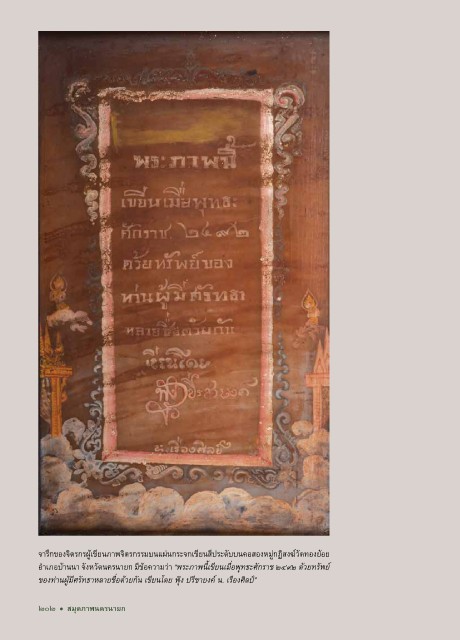 พระภาพนี้
เขียนเมื่อพุทธะ
ศักราช ๒๔๙๒
ด้วยทรัพย์ของ
ท่านผู้มีศรัทธา
หลายชื่อด้วยกัน
เขียนโดย
ฟุ้ง ปรีชายงค์
น.เรืองศิลป์
จารึกของจิตรกรผู้เขียนภาพจิตรกรรมบนแผ่นกระจกเขียนสีประดับบนคอสองหมู่กุฏิสงฆ์วัดทองย้อย
อำเภอบ้านนา จังหวัดนครนายก มีข้อความว่า “พระภาพนี้เขียนเมื่อพุทธะศักราช ๒๔๙๒ ด้วยทรัพย์
ของท่านผู้มีศรัทธาหลายชื่อด้วยกัน เขียนโดย ฟุ้ง ปรีชายงค์ น. เรืองศิลป์”
๒๐๒ • สมุดภาพนครนายก